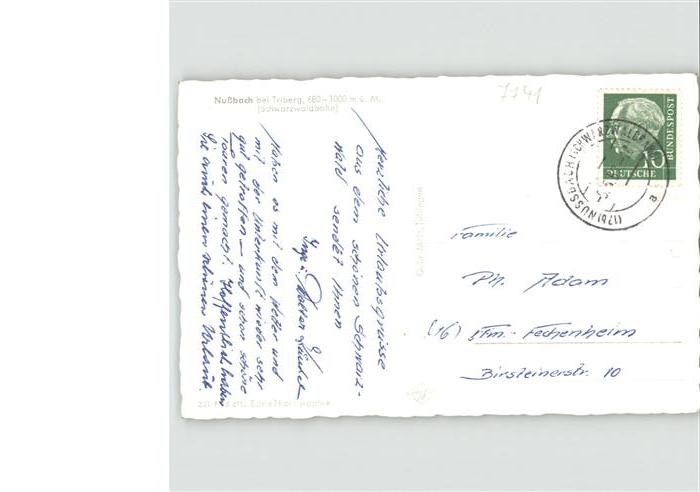 Nußbach bei Triberg, 680–1000 m ü. M.
(Schwarzwaldbahn)
7741
Herzliche Urlaubsgrüsse
aus dem schönen Schwarz-
wald sendet Ihnen
Inge u. Walter
Haben es mit dem Wetter und
mit der Unterkunft wieder sehr
gut getroffen – und schon schöne
Touren gemacht. Hoffentlich haben
Sie auch einen schönen Urlaub
10
DEUTSCHE
BUNDESPOST
(17b) NUSSBACH (SCHWARZWALDBAHN)
a
Familie
Ph. Adam
(16) Ffm.-Fechenheim
Birsteinerstr. 10